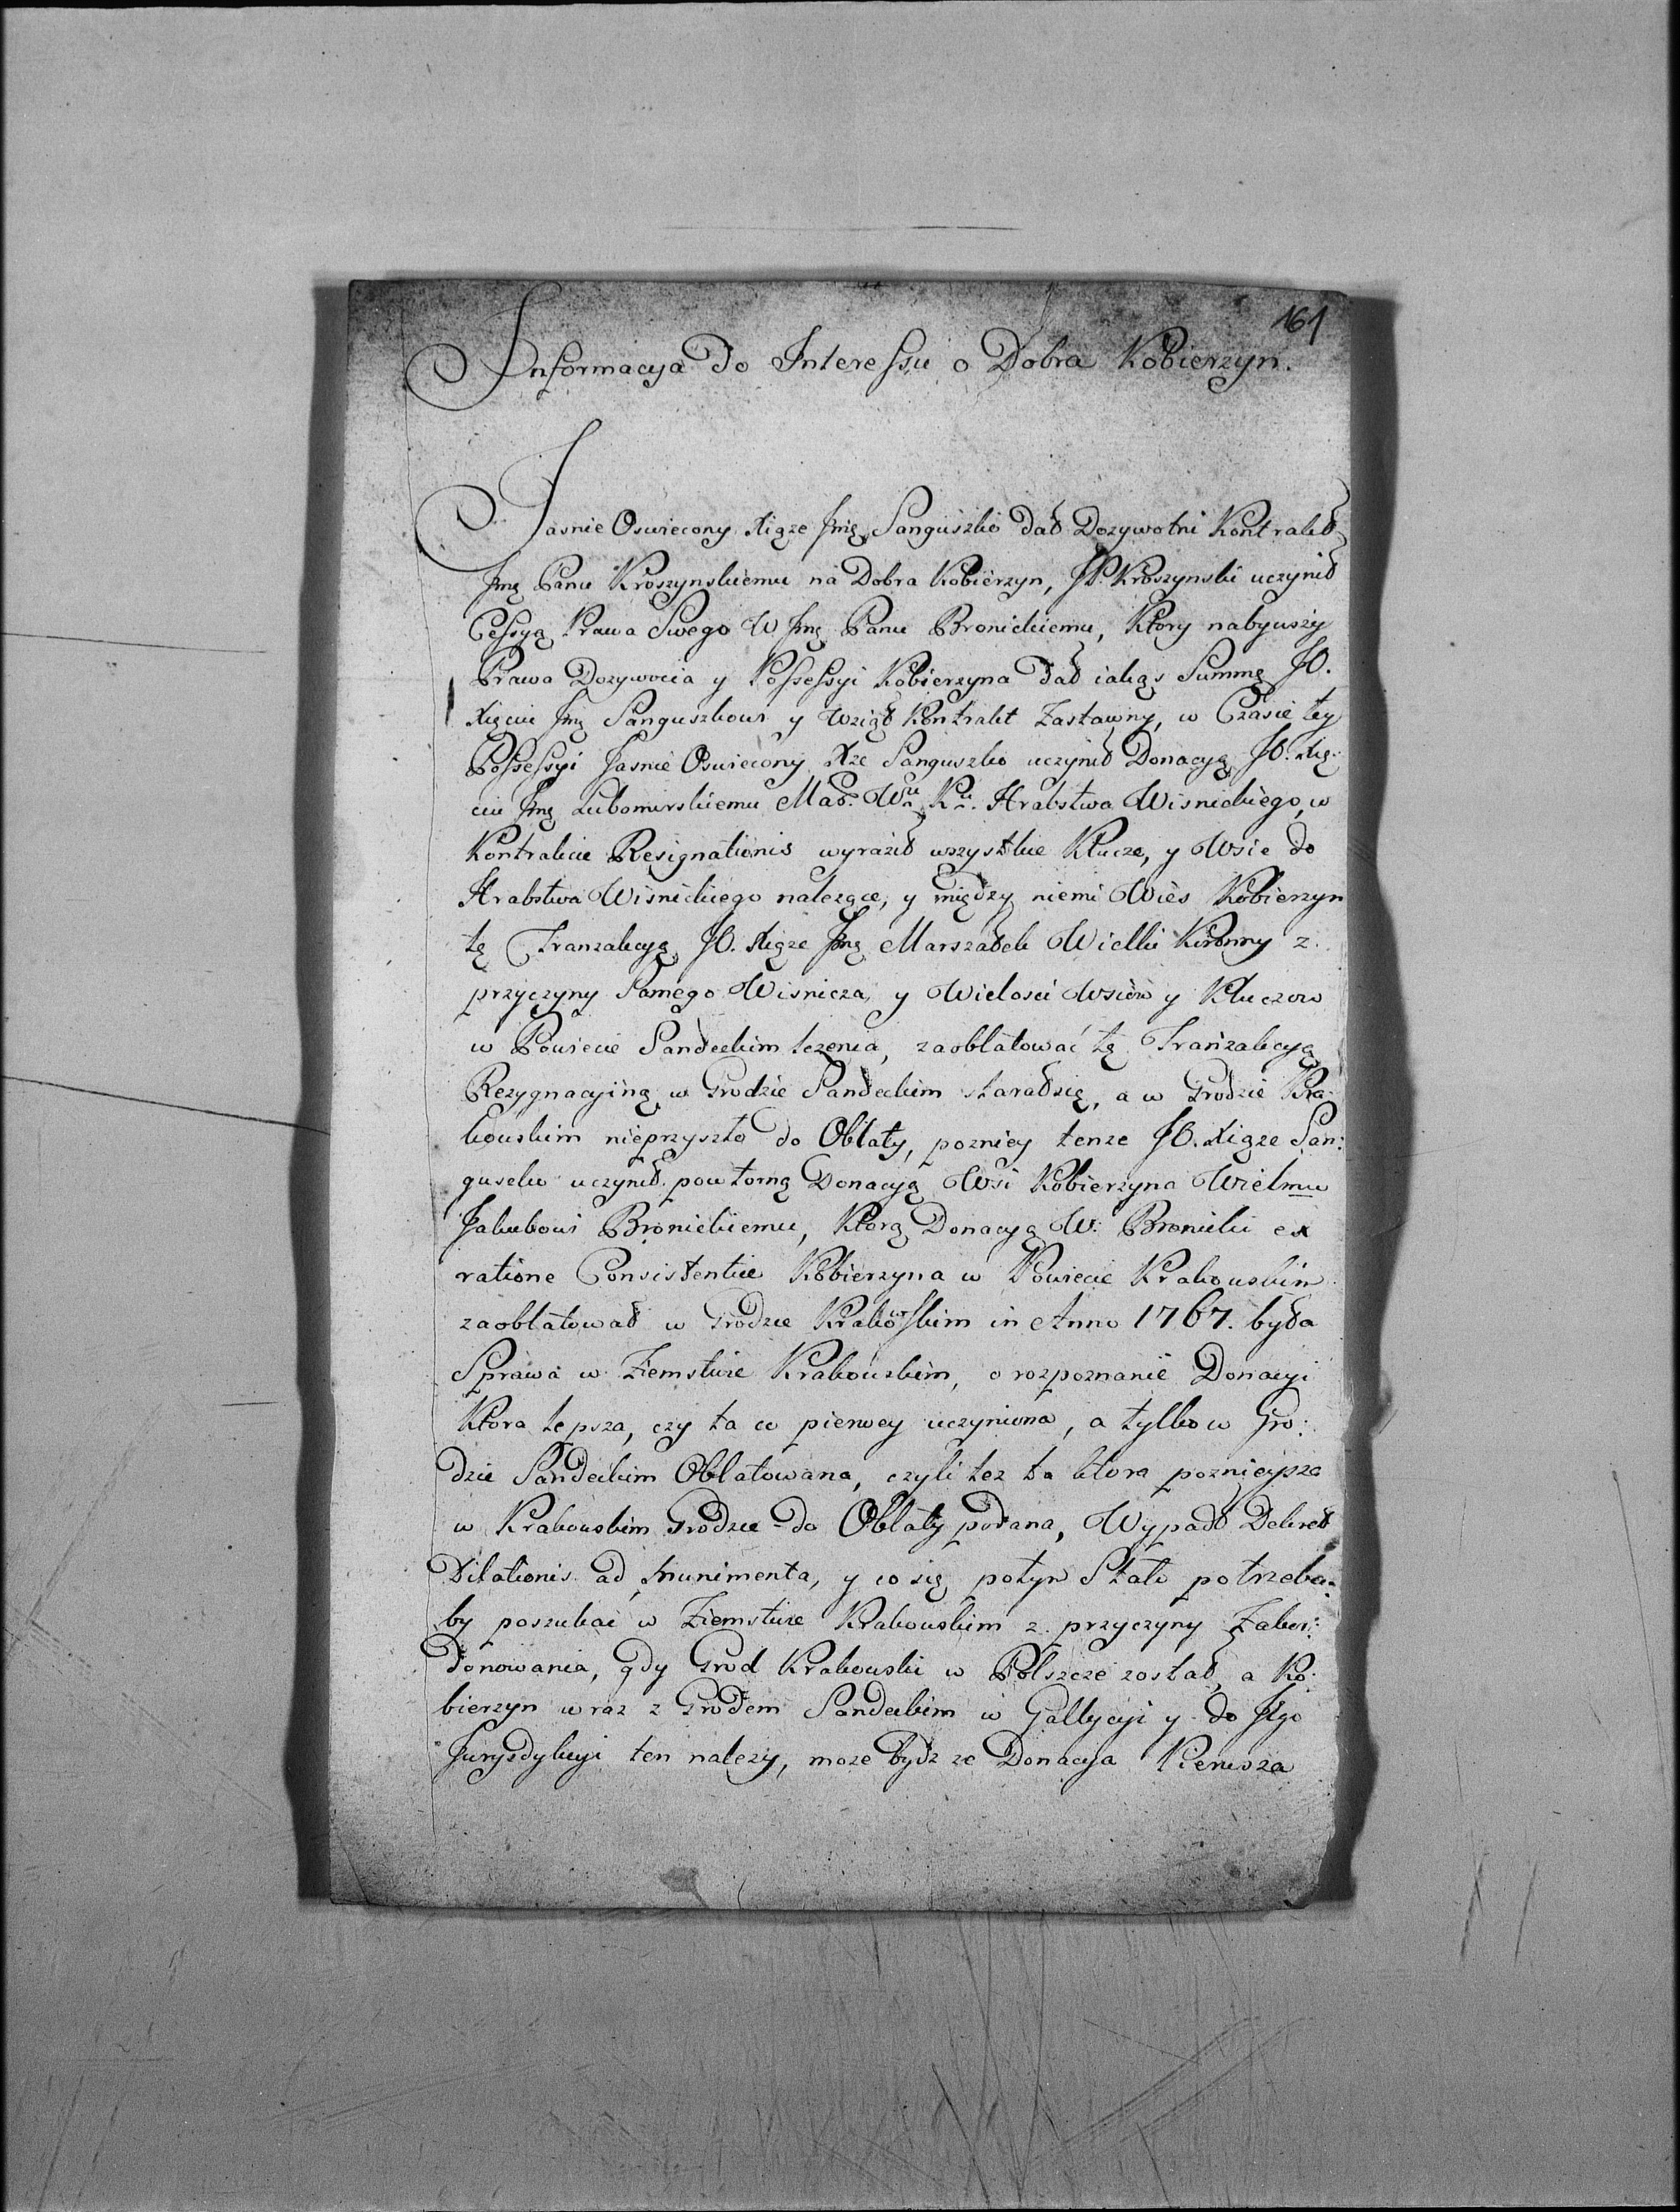 161
Informacya do Interessu o Dobra Kobierzyn.
Jasnie Oswiecony Xiąze Jmę Sanguszko dał Dozywotni Kontrakt
Jmę Panu Kroszynskiemu na Dobra Kobierzyn, JP. Kroszynski uczynił
Cessyą Prawa Swego W Jmę Panu Bronickiemu, Ktory nabywszy
Prawa Dozywocia y Possessyi Kobierzyna dał iakąs Summę JO.
Xięciu Jmę Sanguszkowi y wziął Kontrakt Zastawny, w Czasie tey
Possessyi Jasnie Oswiecony Xze Sanguszko uczynił Donacyą JO. Xię:
ciu Jmę Lubomirskiemu Mar. Wu Ku. Hrabstwa Wisnickiego, w
Kontrakcie Resignationis wyraził wszystkie Klucze, y Wsie do
Hrabstwa Wisnickiego nalezące, y między niemi Wies Kobierzyn
tę Tranzakcyą JO. Xiąze Jmę Marszałek Wielki Koronny z
przyczyny Samego Wisnicza, y Wielosci Wsiow y Kluczow
w Powiecie Sandeckim lezenia, zaoblatować tę Tranzakcyą
Rezygnacyiną w Grodzie Sandeckim starałsię, a w Grodzie Kra:
kowskim nieprzyszło do Oblaty, pozniey tenze JO. Xiąze San:
gusko uczynił powtorną Donacyą Wsi Kobierzyna Wielmu
Jakubowi Bronickiemu, Ktorą Donacyą W. Bronicki ex
ratione Consistentiae Kobierzyna w Powiecie Krakowskim
zaoblatował w Grodzie Krakowskim in Anno 1767. była
Sprawa w Ziemstwie Krakowskim, o rozpoznanie Donacyi
Ktora lepsza, czy ta co pierwey uczyniona, a tylko w Gro:
dzie Sandeckim Oblatowana, czyli tez ta ktora poznieysza
w Krakowskim Grodzie do Oblaty podana, Wypadł Dekret
Dilationis ad munimenta, y co się potym Stało potrzeba
by poszukac w Ziemstwie Krakowskim z przyczyny Zakor:
donowania, gdy Grod Krakowski w Polszcze został, a Ko:
bierzyn wraz z Grodem Sandeckim w Gallycyi y do Jego
Jurysdykcyi ten nalezy, moze bydz ze Donacya Pierwsza